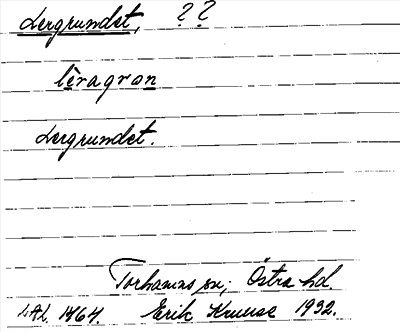 Lergrundet, ??
lèragron
Lergrundet.
Torhamns sn; Östra hd.
LAL 1464 Erik Kruuse 1932.